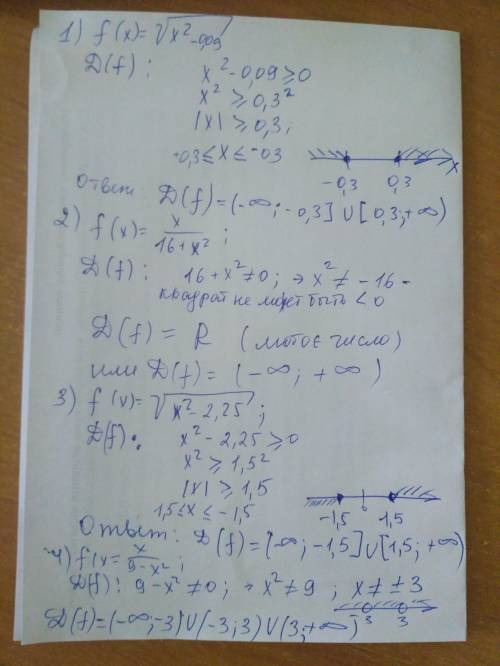 1) f(x)= √x²-0,09
D(f) : x²-0,09 ≥ 0
x² ≥ 0,3²
|x| ≥ 0,3;
-0,3 ≤ x ≤ -0,3
-0,3 0,3 x
Ответ: D(f)=(-∞; -0,3] ∪ [0,3; +∞)
2) f(x)= x/16+x² ;
D(f) : 16+x² ≠ 0; → x² ≠ -16 -
квадрат не может быть < 0
D(f) = R (любое число)
или D(f) = (-∞; +∞)
3) f(x)= √x²-2,25 ;
D(f): x² - 2,25 ≥ 0
x² ≥ 1,5²
|x| ≥ 1,5
1,5 ≤ x ≤ -1,5
-1,5 0 1,5
Ответ: D(f)=[-∞; -1,5] ∪ [1,5; +∞)
4) f(x= x/9-x² ;
D(f): 9-x² ≠ 0; → x² ≠ 9 ; x ≠ ± 3
-3 3
D(f)=(-∞; -3) ∪ (-3; 3) ∪ (3; +∞)